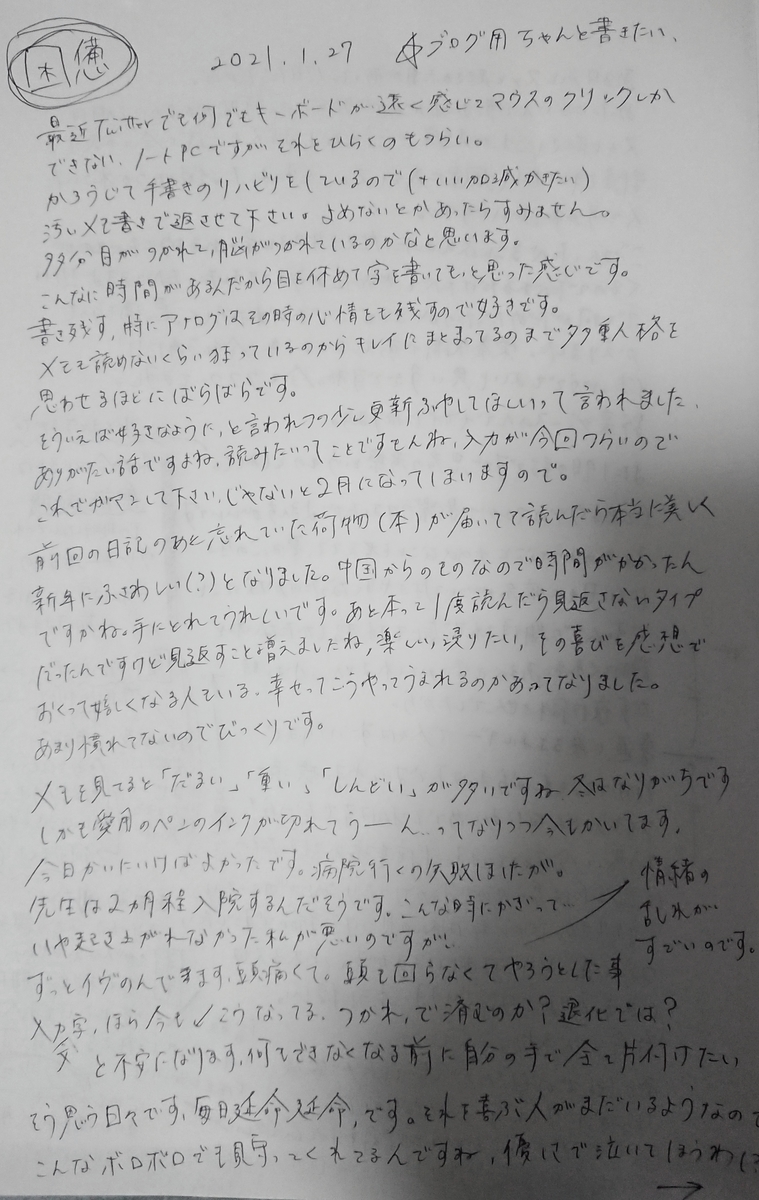 困憊
2021.1.27 ブログ用 ちゃんと書きたい、
最近Twitterでも何でもキーボードが遠く感じてマウスのクリックしか
できない、ノートPCですがそれをひらくのもつらい。
かろうじて手書きのリハビリをしているので(+いい加減かきたい)
汚いメモ書きで返させて下さい。よめないとかあったらすみません。
多分目がつかれて、脳がつかれているのかなと思います。
こんなに時間があるんだから目を休めて字を書いても、と思った感じです。
書き残す、特にアナログはその時の心情をも残すので好きです。
メモも読めないくらい狂っているのからキレイにまとまってるのまで多重人格を
思わせるほどにばらばらです。
そういえば好きなように、と言われつつ少し更新ふやしてほしいって言われました、
ありがたい話ですよね、読みたいってことですもんね、入力が今回つらいので
これでガマンして下さい、じゃないと2月になってしまいますので。
前回の日記のあと忘れていた荷物(本)が届いてて読んだら本当に美しく
新年にふさわしい(?)となりました。中国からのものなので時間がかかったん
ですかね。手にとれてうれしいです。あと本って1度読んだら見返さないタイプ
だったんですけど見返すこと増えましたね、楽しい、浸りたい、その喜びを感想で
おくって嬉しくなる人もいる、幸せってこうやってうまれるのかあってなりました。
あまり慣れてないのでびっくりです。
メモを見てると「だるい」「重い」「しんどい」が多いですね 冬はなりがちです
しかも愛用のペンのインクが切れてうーん…ってなりつつ今もかいてます,
今日かいにいけばよかったです。病院行くの失敗しましたが。
先生は2カ月程入院するんだそうです。こんな時にかぎって…
いや起き上がれなかった私が悪いのですが!
情緒の
乱れが
すごいのです。
ずっとイヴのんでます、頭痛くて。頭も回らなくてやろうとした事
文字,ほら今も✓こうなってる、つかれ,で済むのか?退化では?
と不安になります,何もできなくなる前に自分の手で全て片付けたい
そう思う日々です,毎日延命延命,です。それを喜ぶ人がまだいるようなので
こんなボロボロでも見守ってくれてるんですね,優しさで泣いて
→